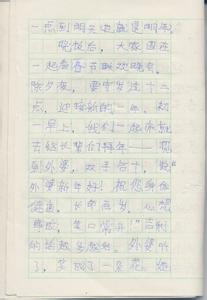 一点到明天也就是明年。
晚饭后，大家围在
一起看春节联欢晚会，
除夕夜，要守岁过十二
点，迎接新的一年，初
一早上，我们一起床就
去给长辈们拜年
到外婆，双手合十，说"
外婆新年好！祝您身体
健康，长命百岁，心想
事成，笑口常开！"吉利
的话越多越好，外婆听
了，笑成了一朵花，给